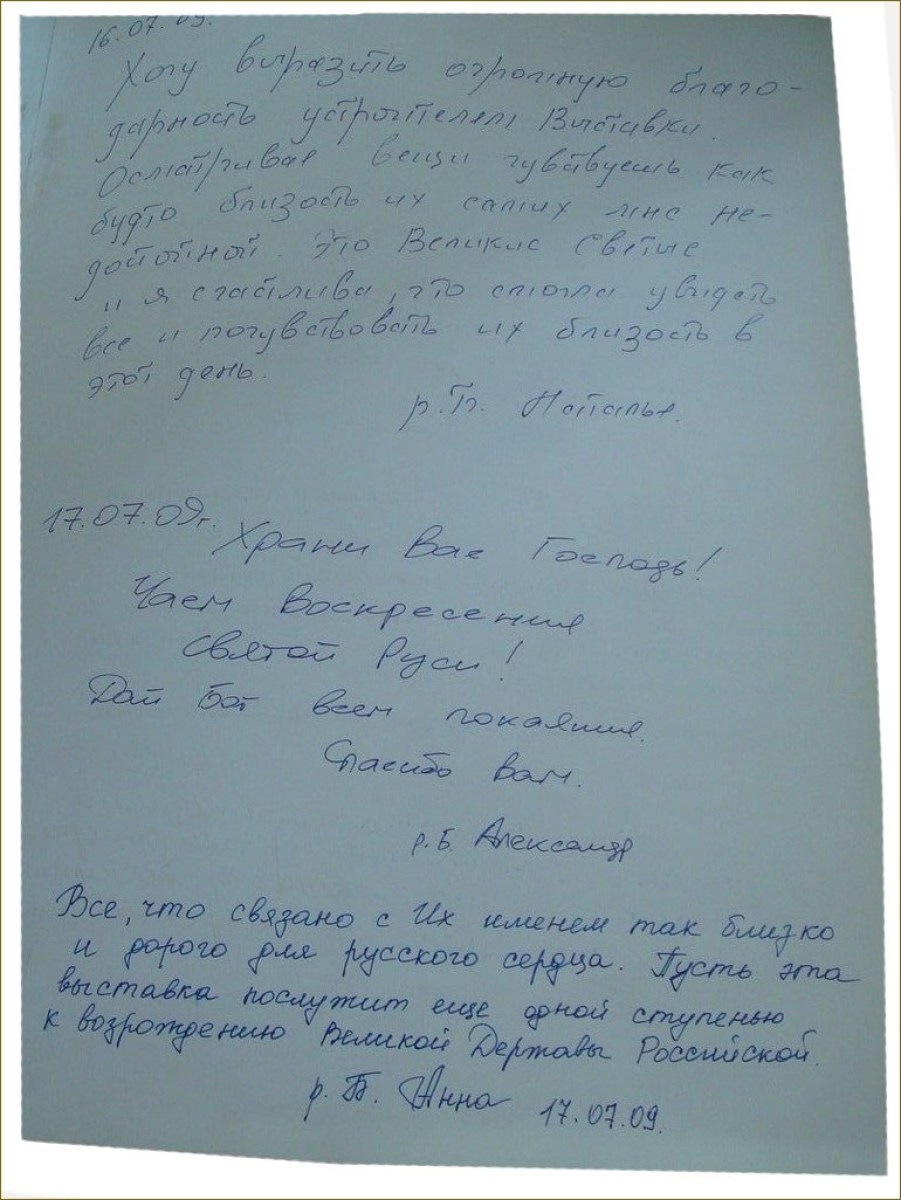 16.07.09.
Хочу выразить огромную благо-
дарность устроителям Выставки.
Осматривая вещи чувствуешь как
будто близость их самих мне не-
достойной. Это Великие Святые
и я счастлива, что смогла увидеть
все и почувствовать их близость в
этот день.
р.Б. Наталья.
17.07.09г.
Храни Вас Господь!
Чаем Воскресения
Святой Руси!
Дай Бог всем покаяния.
Спасибо вам.
р.Б. Александр
Все, что связано с Их именем так близко
и дорого для русского сердца. Пусть эта
выставка послужит еще одной ступенью
к возрождению Великой Державы Российской.
р.Б. Анна 17.07.09.